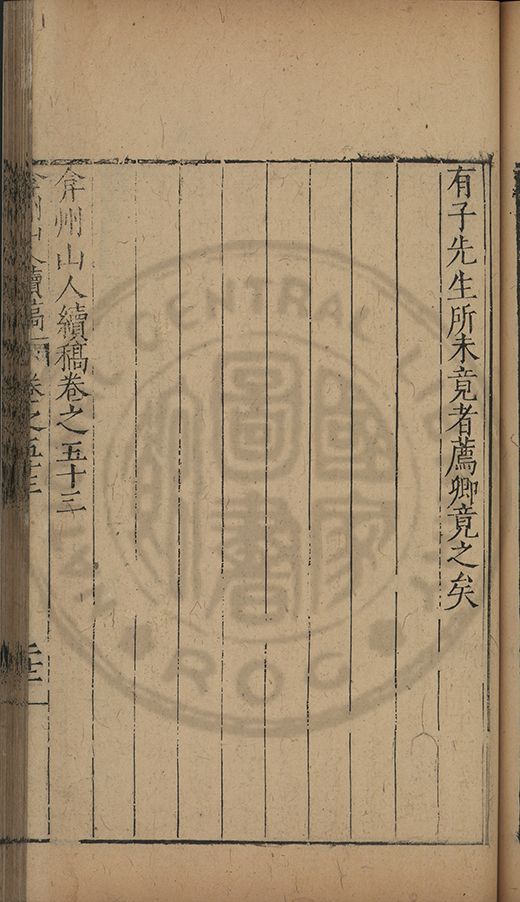 有子先生所未竟者薦卿竟之矣
弇州山人續稿卷之五十三
弇州山人續稿 卷之五十三
CENTRAL
ROC
國家圖書